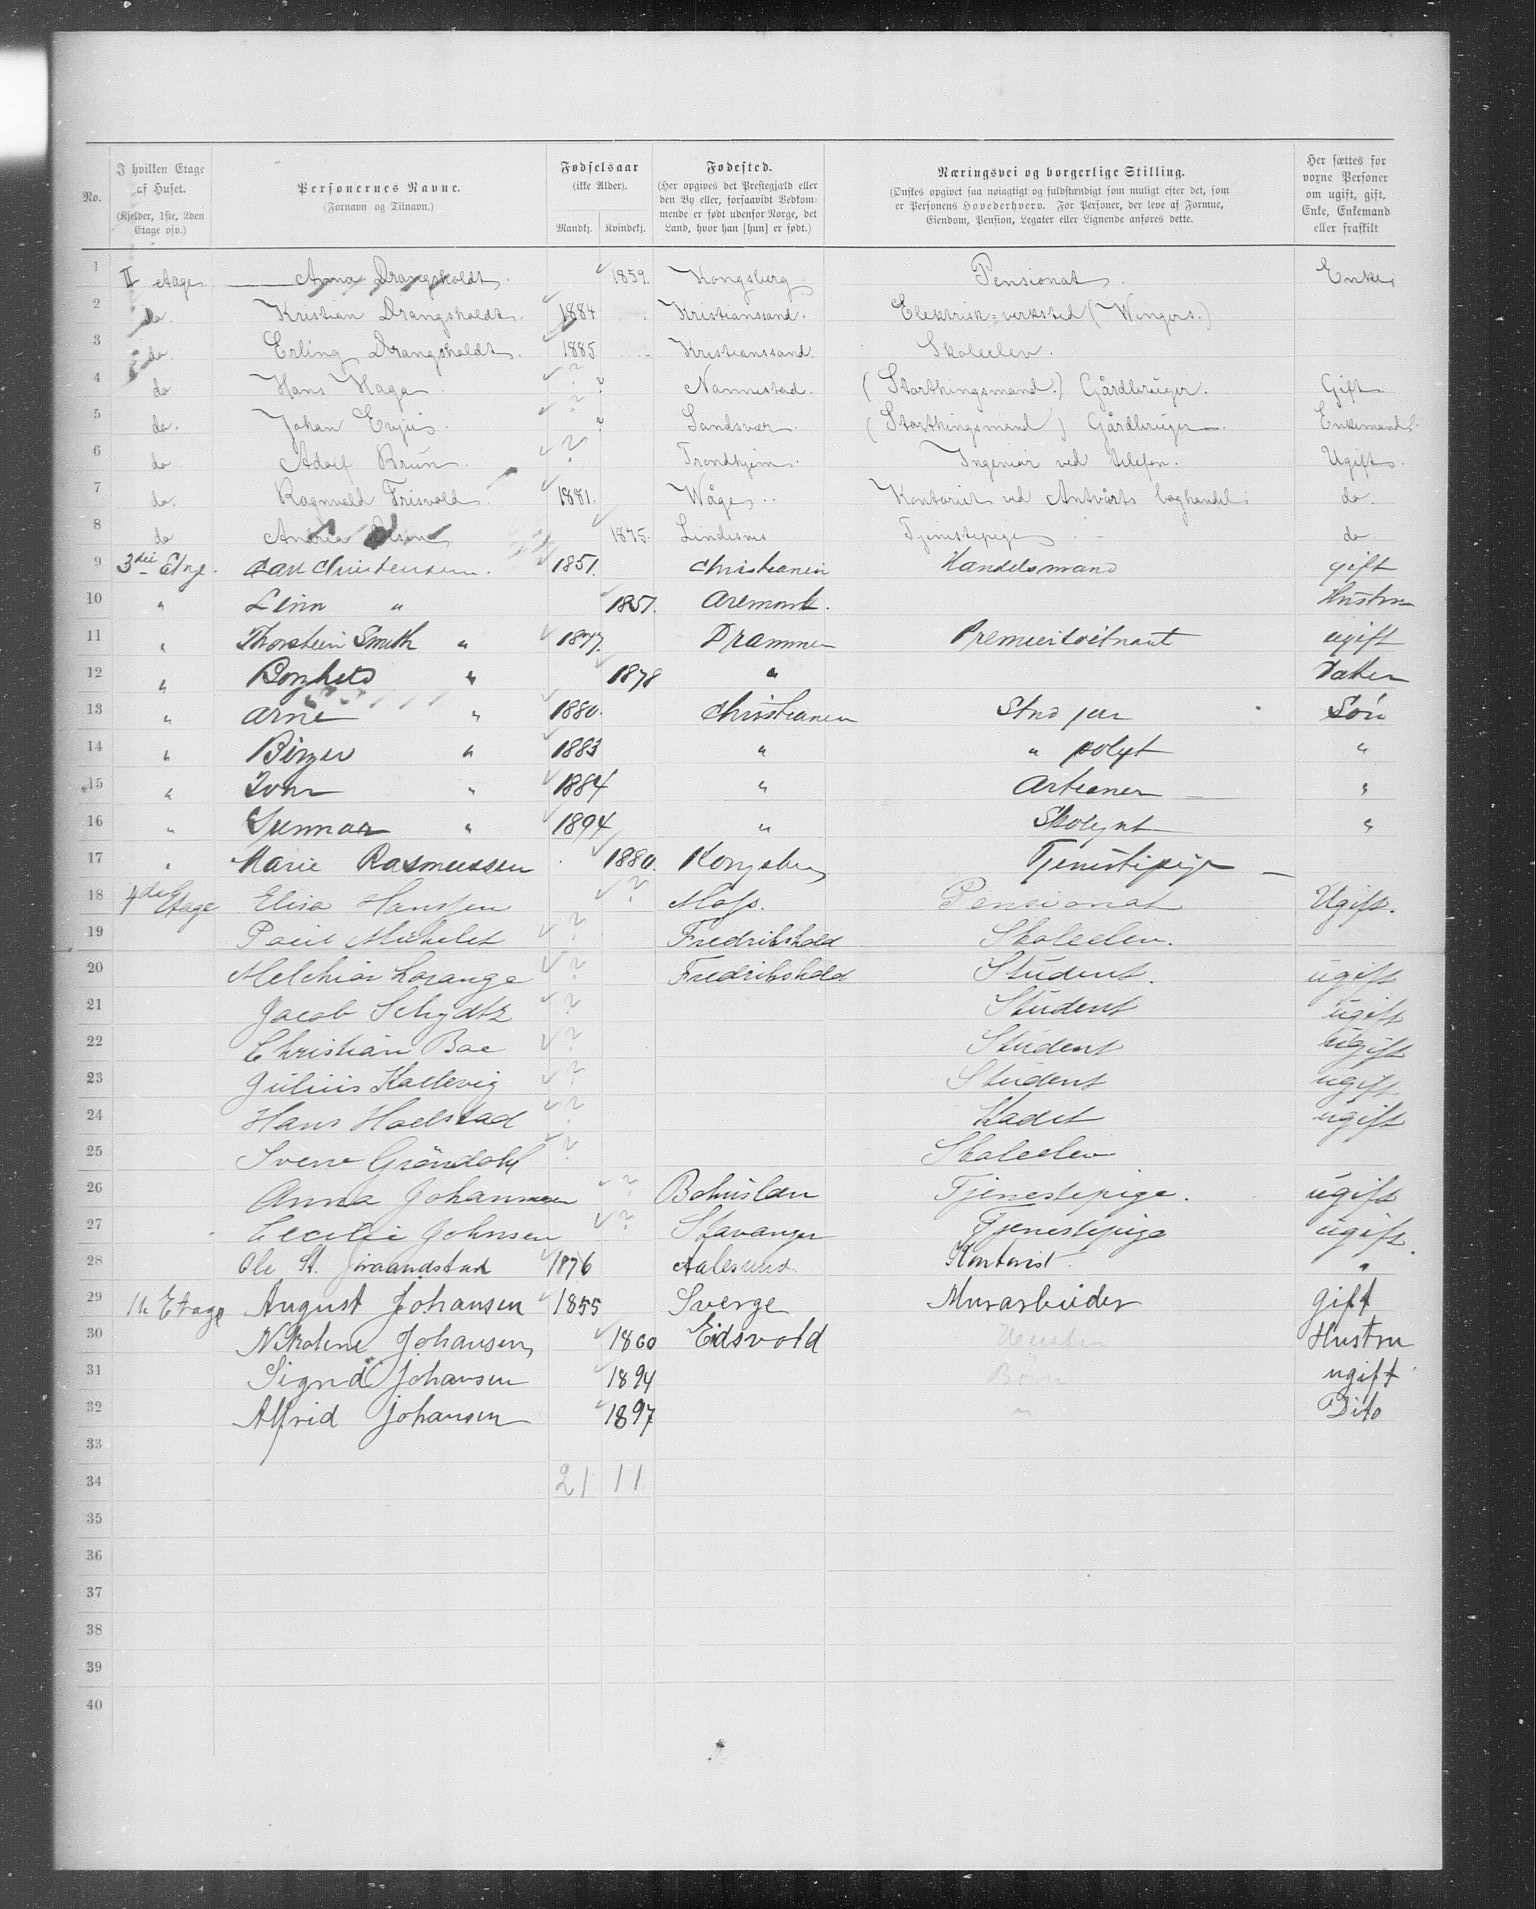 No.
I hvilken Etage af Huset. (Kjelder, 1ste, 2den Etage osv.)
Personernes Navne. (Fornavn og Tilnavn.)
Fødselsaar (ikke Alder). Mandkj. Kvindekj.
Fødested. (Her opgives det Prestegjæld eller den By eller, forsaavidt Vedkommende er født udenfor Norge, det Land, hvor han [hun] er født.)
Næringsvei og borgerlige Stilling. (Ønskes opgivet saa nøiagtigt og fuldstændigt som muligt efter det, som er Personens Hovederhverv. For Personer, der leve af Formue, Eiendom, Pension, Legater eller Lignende anføres dette.
Her sættes for voxne Personer om ugift, gift, Enke, Enkemand eller fraskilt
1 II etage Anna Drangsholdt. 1859. Kongsberg Pensionat. Enke
2 do. Kristian Drangsholdt. 1884 Kristianssand. Elektrisk-verksted (Wingers.)
3 do. Erling Drangsholdt. 1885 Kristianssand. Skoleelev.
4 do. Hans Haga ? ? Nannestad. (Storthingsmand.) Gårdbruger. Gift.
5 do. Johan Evju. ? ? Sandsvær. (Storthingsmand) Gårdbruger. Enkemand.
6 do Adolf Brun. ? Trondhjem. Ingeniør ved telefon. Ugift.
7 do. Ragnvald Frisvold. 1881. Wåge. Kontorist ved boghandel. do.
8 do Andrea Olsen 1875. Lindesnes Tjenestepige do.
9 3die Etage. Carl Christensen. 1851. Christiania Handelsmand gift
10 " Linn " 1857. Aremark. Hustru
11 " Thorstein Smith " 1877. Drammen Premierløitnant ugift
12 " Borghild " 1878 " Datter
13 " Arne " 1880. Christiania Stud jur Søn
14 " Birger " 1883 " " polyt "
15 " Ivar " 1884 " Artianer "
16 " Gunnar " 1894 " "
17 " Marie Rasmussen 1880. Kongsberg Tjenestepige
18 4de Etage Elisa Hanssen ? Moss. Pensionat Ugift.
19 Paul Michelet ? Fredrikshald Skoleelev.
20 Melchior Lorange ? Fredrikshald Student. ugift
21 Jacob Schydtz ? Student ugift
22 Christian Boe ? Student ugift
23 Julius Kallevig ? Student ugift
24 Hans Hoelstad ? Kadet ugift
25 Svein Grøndahl ? Skoleelev
26 Anna Johannsen ? Bohuslæn Tjenestepige. ugift
27 Cecilie Johnsen ? Stavanger Tjenestepige ugift.
28 Ole St. 1876 Aalesund. Kontorist. "
29 1ste Etage August Johansen 1855 Sverge Murarbeider gift
30 Nikoline Johansen, 1860 Eidsvold Hustru
31 Signe Johansen 1894 Børn ugift
32 Alfrid Johansen 1897 " Dito
33
34 21 11
35
36
37
38
39
40